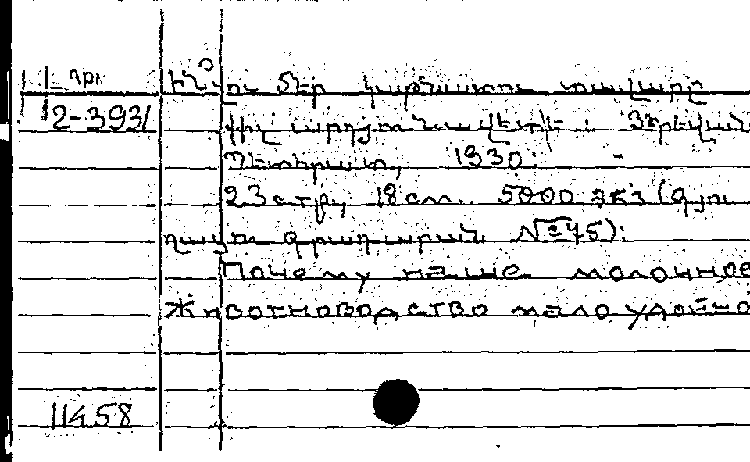 Գրк
2-3931
Ինչու մեր կաթնատու տավարը
քիչ արդյունավետ է: Յերեվան
Պետհրատ, 1930: -
23 стр, 18 см. 5000 экз (Գյու
ղացու գրադարան №45):
Почему наше молочное
животноводство мало удойно
11458